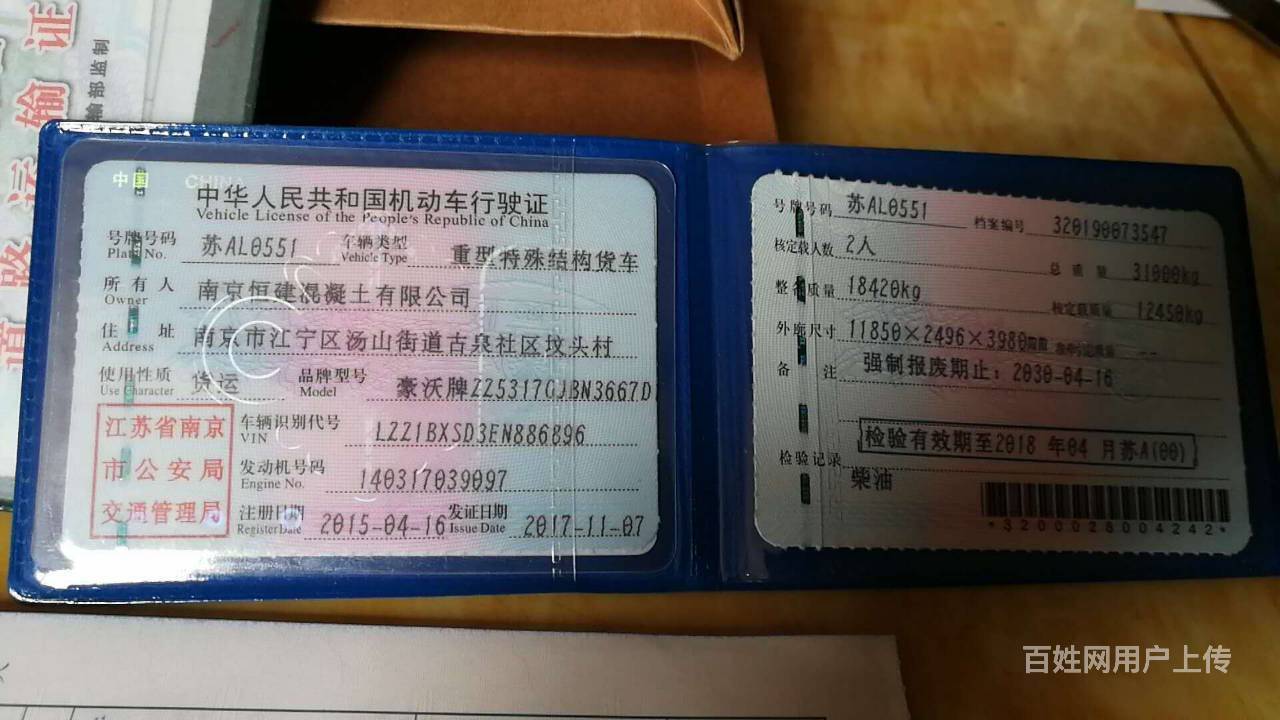 道路运输证
输部监制
中国 CHINA
中华人民共和国机动车行驶证
Vehicle License of the People's Republic of China
号牌号码 苏AL0551 车辆类型 重型特殊结构货车
Plate No. Vehicle Type
所有人 南京恒建混凝土有限公司
Owner
住址 南京市江宁区汤山街道古泉社区坟头村
Address
使用性质 货运 品牌型号 豪沃牌ZZ5317GJBN3667D
Use Character Model
江苏省南京
市公安局
交通管理局
车辆识别代号 LZZ1BXSD3EN886896
VIN
发动机号码 140317039097
Engine No.
注册日期 2015-04-16 发证日期 2017-11-07
Register Date Issue Date
号牌号码 苏AL0551 档案编号 320190073547
核定载人数 2人 总质量 31000kg
整备质量 18420kg 核定载质量 12450kg
外廓尺寸 11850×2496×3980mm --
备注 强制报废期止：2030-04-16
检验有效期至2018 年04 月苏A(00)
检验记录
柴油
*3200028004242*
百姓网用户上传